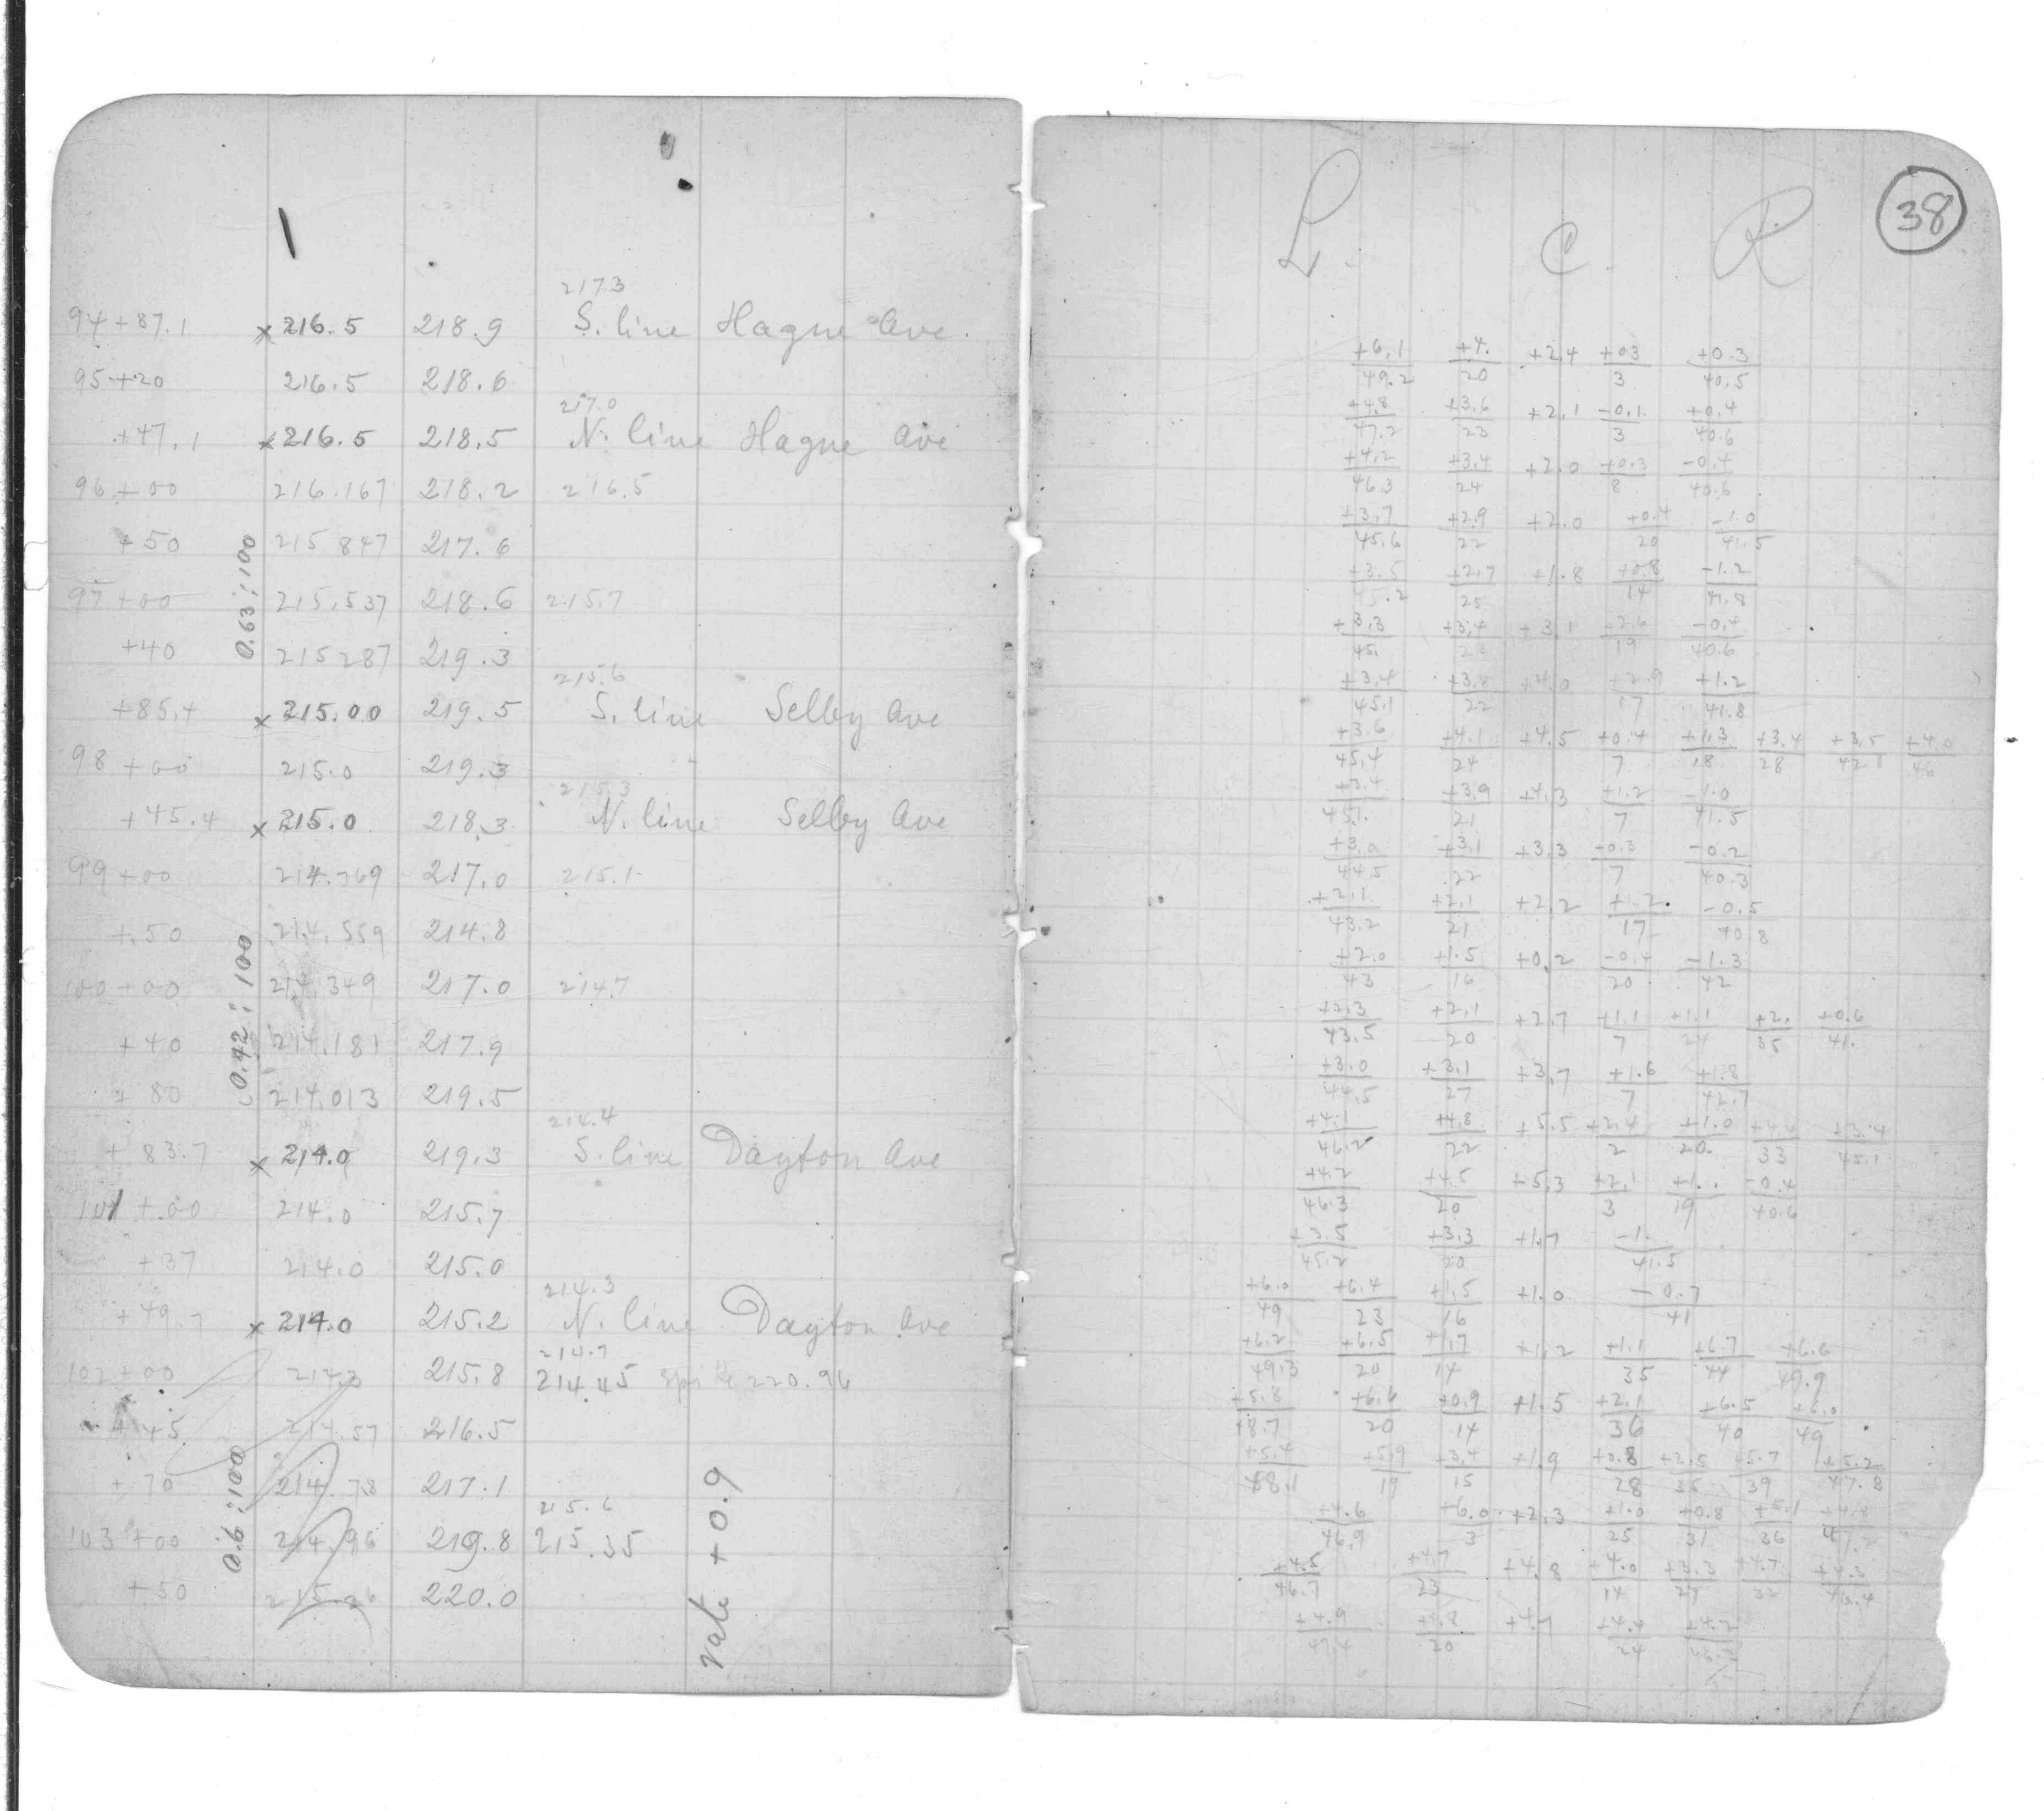 217.3
94+87.1 x216.5 218.9 S. line Hague Ave.
95+20 216.5 218.6
217.0
+47.1 x216.5 218.5 N. line Hague Ave
96+00 216.167 218.2 216.5
+50 215.847 217.6
97+00 215.537 218.6 215.7
+40 215287 219.3
0.63:100
215.6
+85.4 x215.00 219.5 S. line Selby Ave
98+00 215.0 219.3
215.3
+45.4 x215.0 218.3 N. line Selby Ave
99+00 214.769 217.0 215.1
+50 214.559 214.8
100+00 214.349 217.0 214.7
+40 214.181 217.9
+80 214.013 219.5
0.42:100
214.4
+83.7 x214.0 219.3 S. line Dayton Ave
101+00 214.0 215.7
+37 214.0 215.0
214.3
+49.7 x214.0 215.2 N. line Dayton Ave
214.7
102+00 214.3 215.8 214.45 spike 220.96
+45 214.57 216.5
+70 214.78 217.1
215.6
103+00 214.96 219.8 215.35
+50 215.26 220.0
0.6:100
rate +0.9
38
L. C. R
+6.1 +4. +2.4 +03 +0.3
49.2 20 3 40.5
+4.8 +3.6 +2.1 -0.1 +0.4
47.2 23 3 40.6
+4.2 +3.4 +2.0 +0.3 -0.4
46.3 24 8 40.6
+3.7 +2.9 +2.0 +0.4 -1.0
45.6 22 20 41.5
+3.5 +2.7 +1.8 +0.8 -1.2
45.2 25 14 41.8
+3.3 +3.4 +3.1 +2.6 -0.4
45. 22 19 40.6
+3.4 +3.8 +4.0 +2.9 +1.2
45.1 22 17 41.8
+3.6 +4.1 +4.5 +0.4 +1.3 +3.4 +3.5 +4.0
45.4 24 7 18 28 42 46
+3.4 +3.9 +4.3 +1.2 -1.0
45.1 21 7 41.5
+3.0 +3.1 +3.3 -0.3 -0.2
44.5 22 7 40.3
+2.1 +2.1 +2.2 +1.2 -0.5
43.2 21 17 40.8
+2.0 +1.5 +0.2 -0.4 -1.3
43 16 20 42
+2.3 +2.1 +2.7 +1.1 +1.1 +2. +0.6
43.5 20 7 24 35 41.
+3.0 +3.1 +3.7 +1.6 +1.8
44.5 27 7 42.7
+4.1 +4.8 +5.5 +2.4 +1.0 +4.4 +3.4
46.2 22 2 20. 33 45.1
+4.2 +4.5 +5.3 +2.1 +1. -0.4
46.3 20 3 19 40.6
+3.5 +3.3 +1.7 -1.
45.2 20 41.5
+6.0 +6.4 +1.5 +1.0 -0.7
49 23 16 41
+6.2 +6.5 +1.7 +1.2 +1.1 +6.7 +6.6
49.3 20 14 35 44 49.9
+5.8 +6.6 +0.9 +1.5 +2.1 +6.5 +6.0
48.7 20 14 36 40 49
+5.4 +5.9 +3.4 +1.9 +0.8 +2.5 +5.7 +5.2
48.1 19 15 28 35 39 47.8
+4.6 +6.0 +2.3 +1.0 +0.8 +5.1 +4.8
46.9 3 25 31 36 47.2
+4.5 +4.7 +4.8 +4.0 +3.3 +4.7 +4.3
46.7 23 14 27 32 46.4
+4.9 +4.8 +4.7 +4.4 +4.2
47.4 20 24